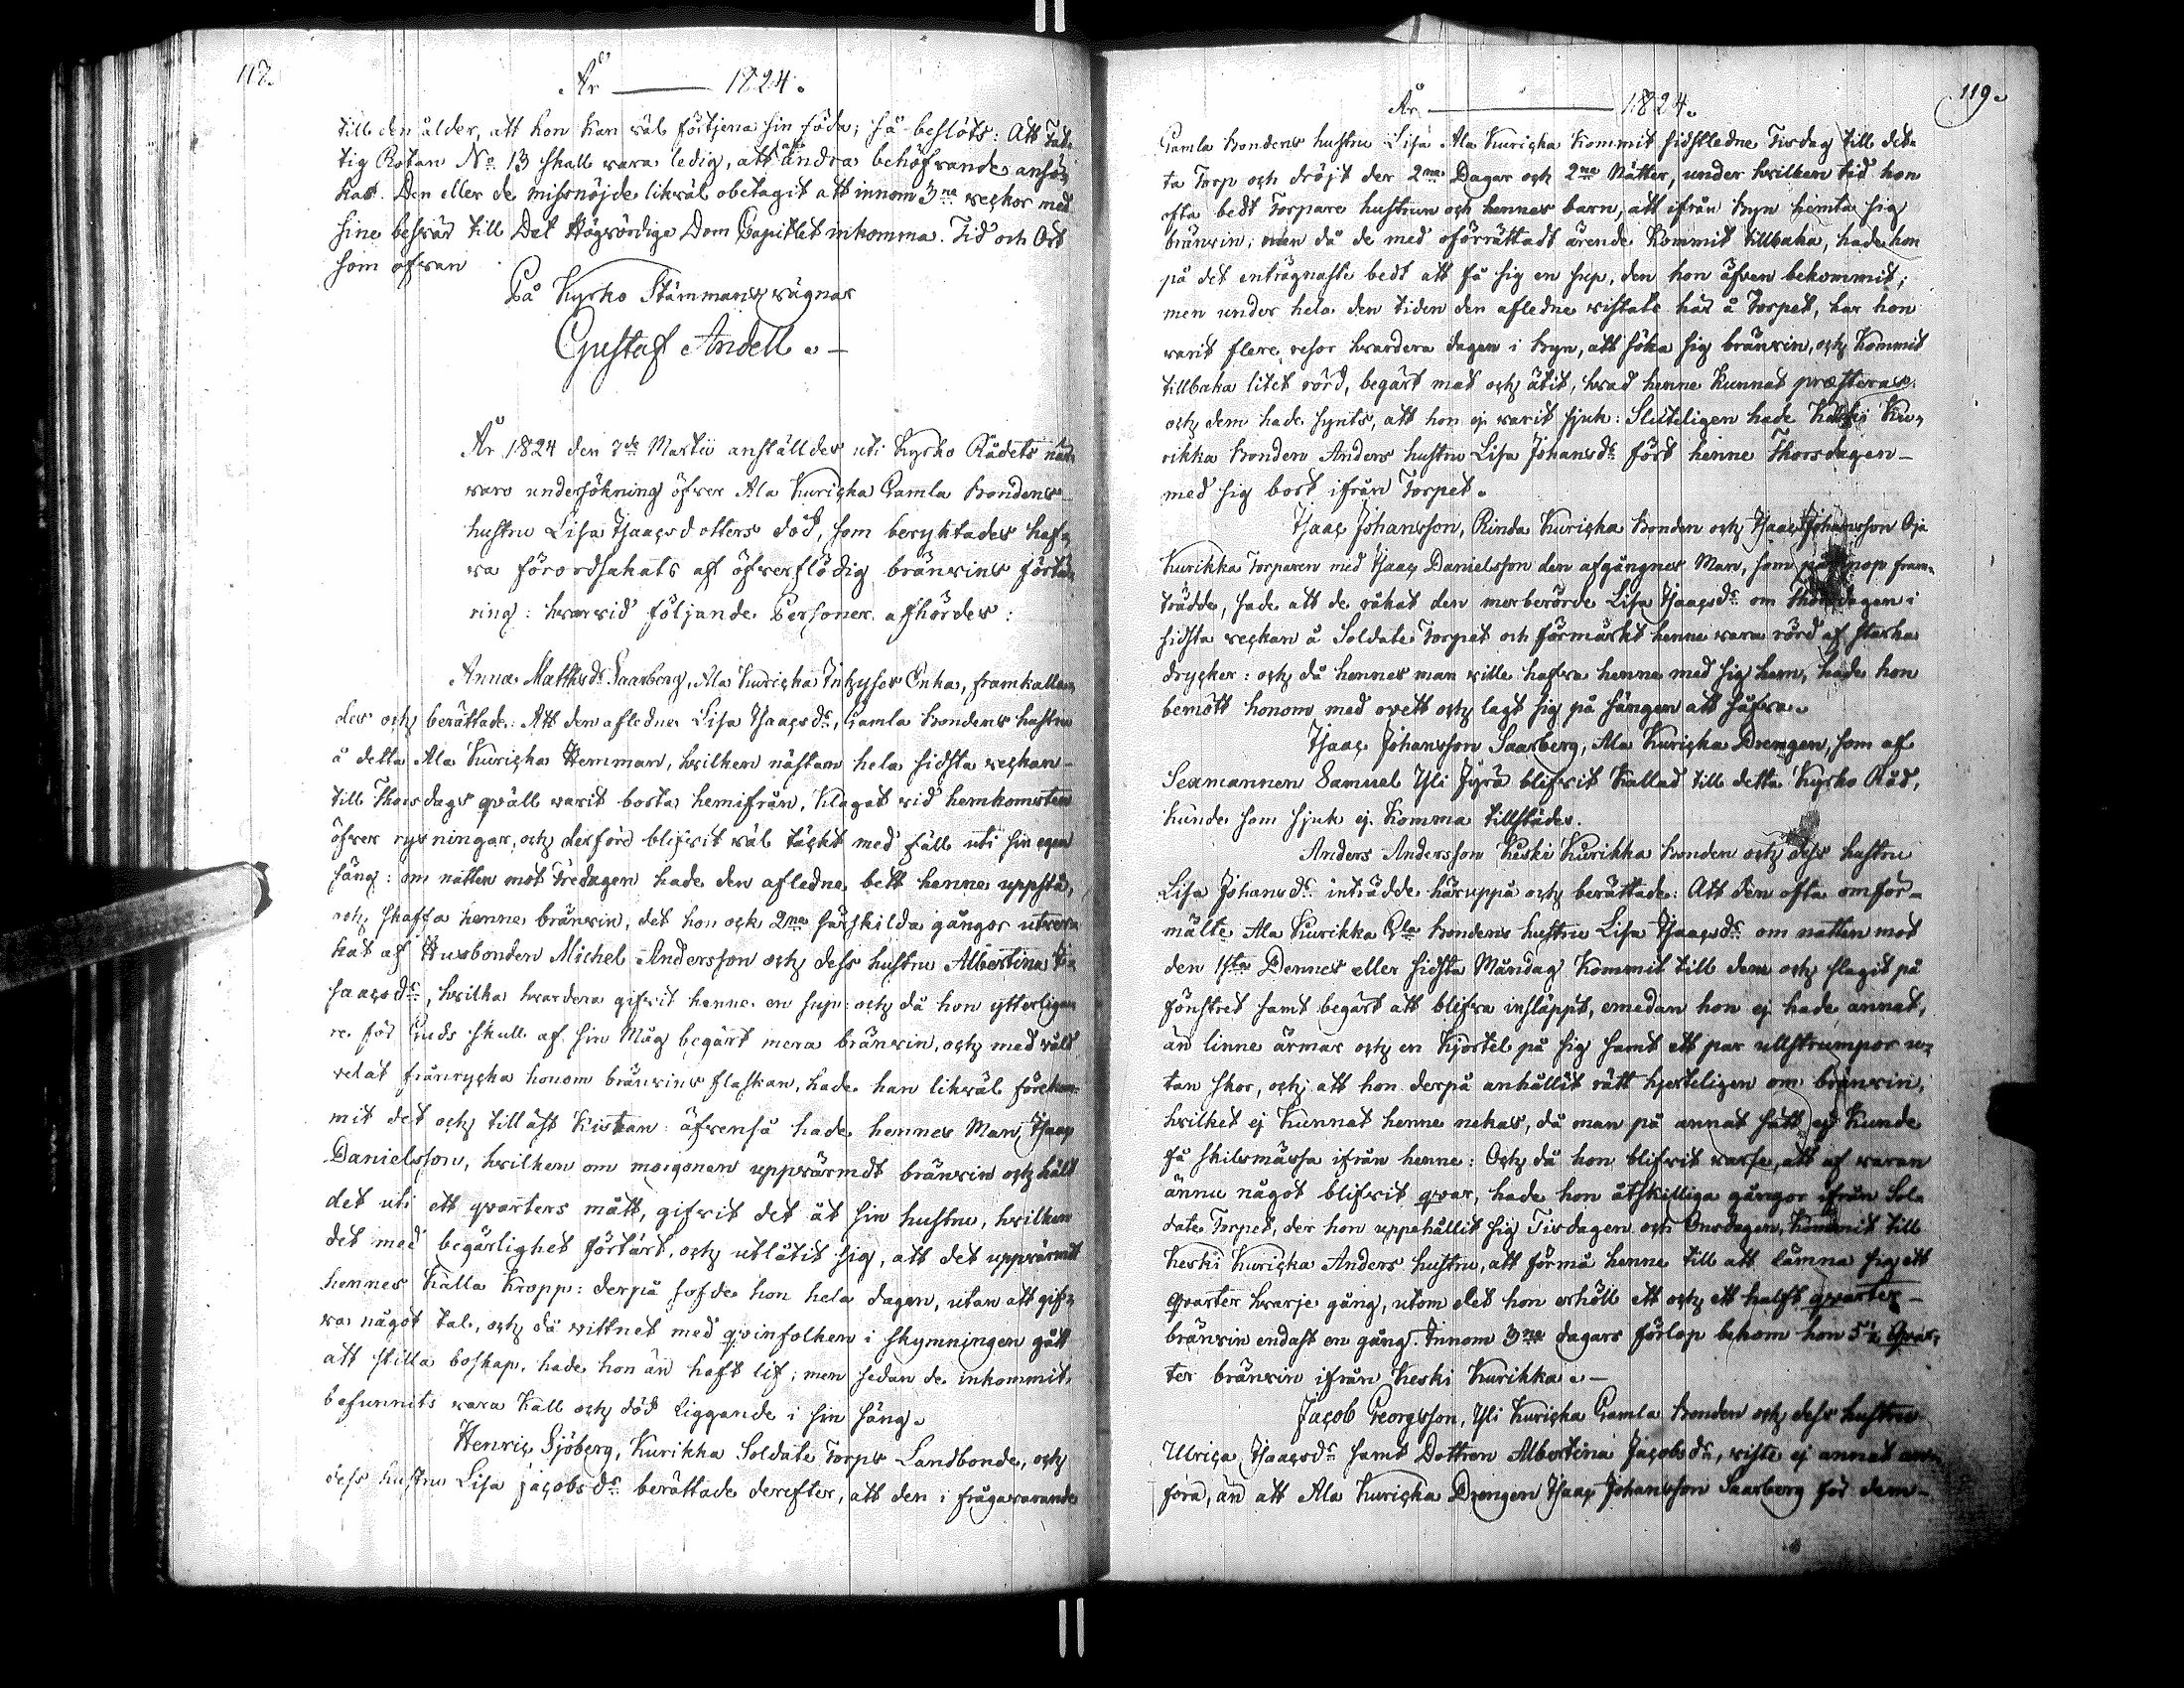 118.
År ——— 1824.
till den ålder, att hon kan väl förtjena sin föda; så beslöts: Att Fat-
tig Rotan No 13 skall vara ledig, att af andra behöfvande ansö-
kas. Den eller de missnöjde likväl obetagit att innom 3ne veckor med
sine besvär till Det Högvördige Dom Capitlet inkomma. Tid och Ort
som ofvan
På Kyrko Stämmans vägnar
Gustaf Andell. –
År 1824 den 7de Martii anställdes uti Kyrko Rådets när-
varo undersökning öfver Ala Kuricka Gamla Bondens
hustru Lisa Isaacsdotters död, som beryktades haf-
va förordsakats af öfverflödig bränvins förtä-
ring: hvarvid följande Personer afhördes:
Anna Mathsdr Saarberg, Ala Kuricka Inhyses Enka, framkalla-
des och berättade: Att den afledne Lisa Isaacsdr, Gamla Bondens hustru
å detta Ala Kuricka Hemman, hvilken nästan hela sidsta veckan
till Thorsdags qväll varit borta hemifrån, klagat vid hemkomsten
öfver rysningar, och derföre blifvit väl täckt med fäll uti sin egen
säng: om natten mot Fredagen hade den afledne bett henne uppstå,
och skaffa henne bränvin, det hon ock 2ne särskilda gångor utver-
kat af Husbonden Michel Andersson och dess hustru Albertina I-
saacsdr, hvilka hvardera gifvit henne en sup: och då hon ytterliga-
re för Guds skull af sin Måg begärt mera bränvin, och med våld
velat frånrycka honom bränvins flaskan, hade han likväl förekom-
mit det och tillåst Kistan: äfvenså hade hennes Man, Isaac
Danielsson, hvilken om morgonen uppvärmdt bränvin och hålt
det uti ett qvarters mått, gifvit det åt sin hustru, hvilken
det med begärlighet förtärt, och utlåtit sig, att det uppvärmt
hennes kalla kropp: derpå sofde hon hela dagen, utan att gif-
va något tal, och då vittnet med qvinfolken i skymningen gått
att stilla boskap, hade hon än haft lif; men sedan de inkommit,
befunnits vara kall och död liggande i sin säng.
Henric Sjöberg, Kurikka Soldate Torps Landbonde, och
dess hustru Lisa Jacobsdr berättade derefter, att den i frågavarande
119.
År ——— 1824.
Gamla Bondens hustru Lisa Ala Kuricka kommit sidstledne Tisdag till det-
ta Torp och dröjt der 2ne Dagar och 2ne Nätter, under hvilken tid hon
ofta bedt Torpare hustrun och hennes barn, att ifrån Byn hemta sig
bränvin; men då de med oförrättadt ärende kommit tillbaka, hade hon
på det enträgnaste bedt att få sig en sup, den hon äfven bekommit;
men under hela den tiden den afledne vistats här å Torpet, har hon
varit flere resor hvardera dagen i Byn, att söka sig bränvin, och kommit
tillbaka litet rörd, begärt mat och ätit, hvad henne kunnat præsteras,
och dem hade synts, att hon ej varit sjuk: Sluteligen hade Keski Ku-
rikka Bonden Anders hustru Lisa Johansdr fört henne Thorsdagen
med sig bort ifrån Torpet.
Isaac Johansson, Rinda Kuricka Bonden och Isaac Johansson Oja
Kurikka Torparen med Isaac Danielsson den afgångnes Man, som på upprop fram-
trädde, sade att de råkat den merberörde Lisa Isaacsdr om Thorsdagen i
sidsta veckan å Soldate Torpet och förmärkt henne vara rörd af starka
drycker: och då hennes man ville hafva henne med sig hem, hade hon
bemött honom med ovett och lagt sig på sängen att såfva.
Isaac Johansson Saarberg, Ala Kuricka Drengen, som af
Sexmannen Samuel Yli Jyrä blifvit kallad till detta Kyrko Råd,
kunde som sjuk ej komma tillstädes.
Anders Andersson Keski Kurikka Bonden och dess hustru
Lisa Johansdr inträdde häruppå och berättade: Att den ofta omför-
mälte Ala Kurikka Gla Bondens hustru Lisa Isaacsdr om natten mot
den 1sta Dennes eller sidsta Måndag kommit till dem och slagit på
fönstret samt begärt att blifva insläppt, emedan hon ej hade annat,
än linne ärmar och en kjortel på sig samt ett par ullstrumpor u-
tan skor, och att hon derpå anhållit rätt hjerteligen om bränvin,
hvilket ej kunnat henne nekas, då man på annat sätt ej kunde
få skilsmässa ifrån henne: Och då hon blifvit varse, att af varan
ännu något blifvit qvar, hade hon åtskilliga gångor ifrån Sol-
date Torpet, der hon uppehållit sig Tisdagen och Onsdagen, kommit till
Keski Kuricka Anders hustru, att förmå henne till att lämna sig ett
qvarter hvarje gång, utom det hon erhöll ett och ett halft qvarter
bränvin endast en gång. Innom 3ne dagars förlop bekom hon 5½ Qvar-
ter bränvin ifrån Keski Kurikka. –
Jacob Georgsson, Yli Kuricka Gamla Bonden och dess hustru
Ulrica Isaacsdr samt Dottren Albertina Jacobsdr, viste ej annat an-
föra, än att Ala Kuricka Drengen Isaac Johansson Saarberg för dem